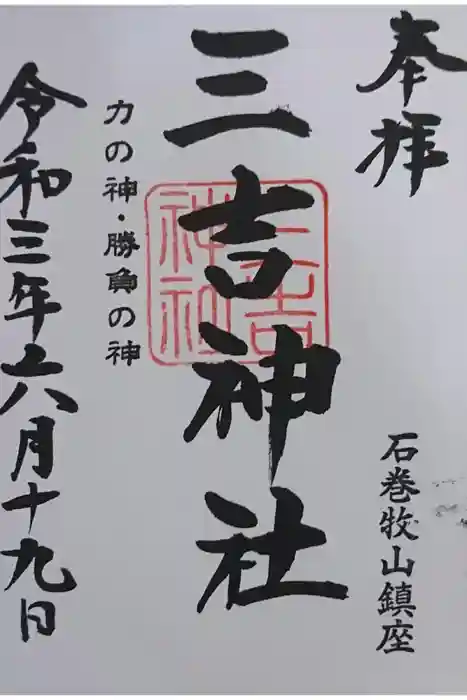 奉拝
石巻牧山鎮座
三吉神社
三吉神社
力の神・勝負の神
令和三年六月十九日